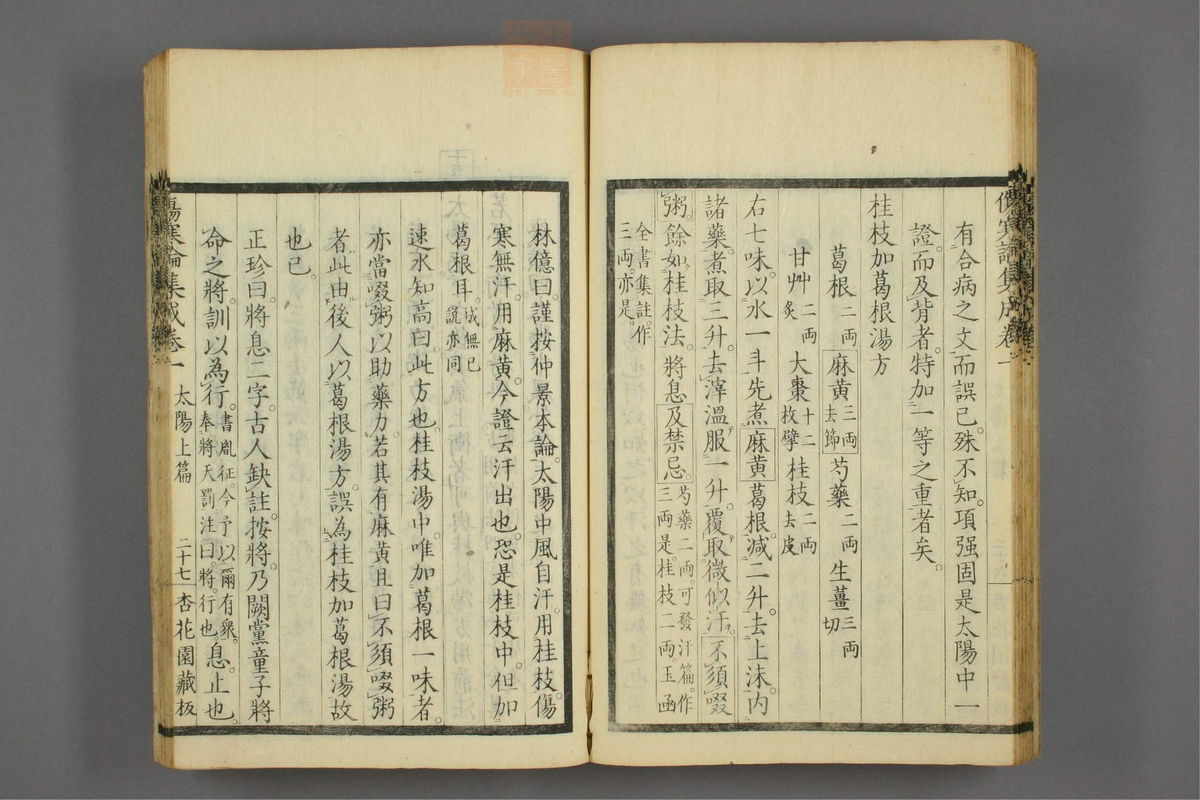 有合病之文而誤已。殊不知項强固是太陽中一
證。而及背者。特加一等之重者矣。
桂枝加葛根湯方
葛根二兩 麻黄三兩去節 芍藥二兩 生薑三兩切
甘艸二兩炙 大棗十二枚擘 桂枝二兩去皮
右七味。以水一斗先煮麻黄葛根。減二升。去上沫。内
諸藥。煮取三升。去滓溫服一升。覆取微似汗。不須啜
粥。餘如桂枝法。將息及禁忌。芍藥二兩。可發汁篇。作三兩是。桂枝二兩。玉函
全書集註。作三兩。亦是。
林億曰。謹按仲景本論。太陽中風自汗。用桂枝。傷
寒無汗。用麻黄。今證云汗出也。恐是桂枝中。但加
葛根耳。成無已說亦同
速水知高曰。此方也。桂枝湯中。唯加葛根一味者。
亦當啜粥。以助藥力。若其有麻黄且曰不須啜粥
者。此由後人以葛根湯方。誤為桂枝加葛根湯故
也已。
正珍曰。將息二字。古人缺註。按將。乃闕黨童子將
命之將。訓以為行。書胤征。今予以爾有衆。奉將天罰注曰。將。行也。息。止也。
傷寒論集成卷一 太陽上篇 二十七 杏花園藏板